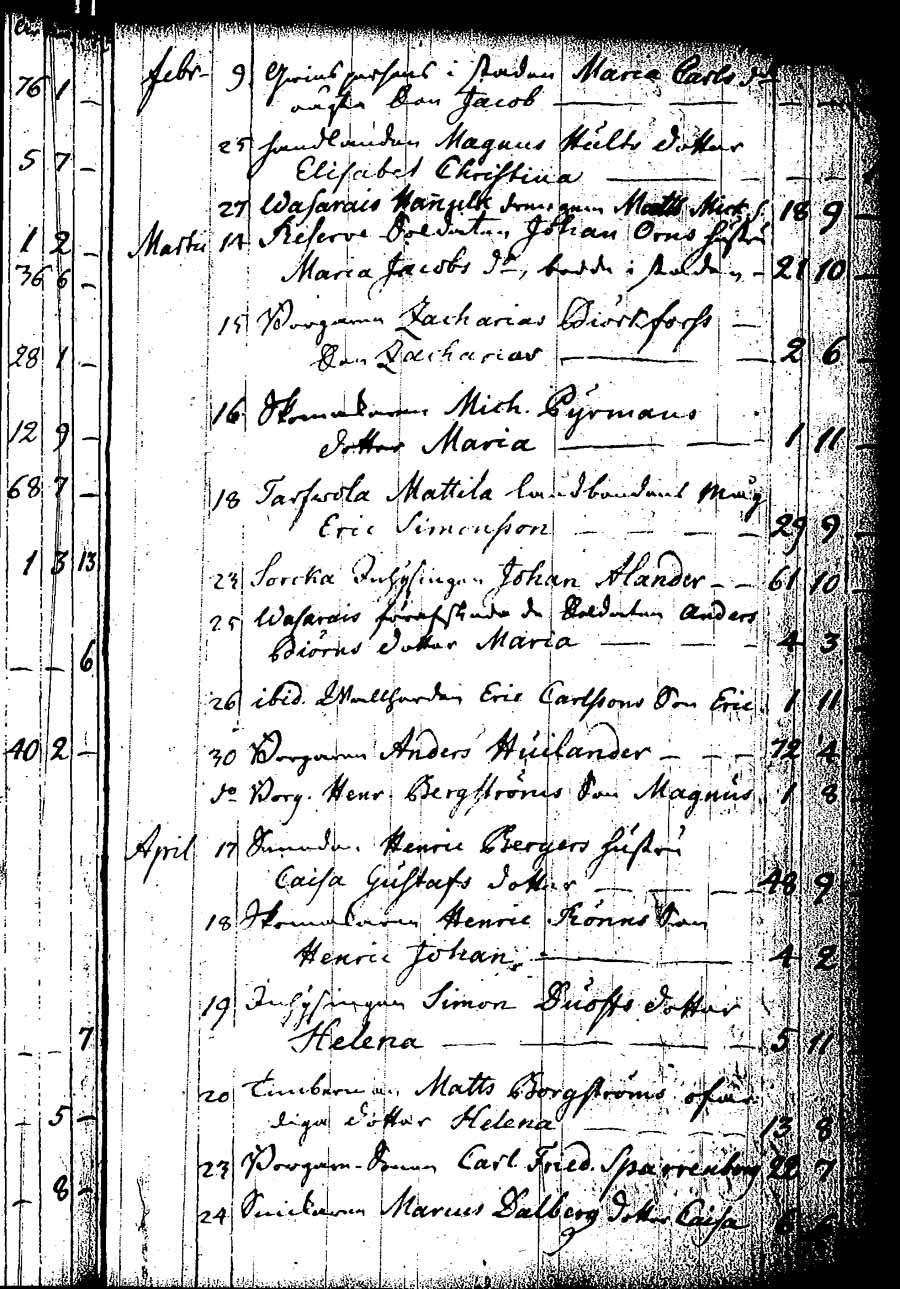 76 1 – Febr. 9 i staden Maria Carls dr
Son Jacob
25 handlanden Magnus Hults dotter
5 7 – Elisabet Christina
27 Wasarais drängen Matts Mick. S. 18 9 –
1 2 – Martii 14 Reserve Soldaten Johan Orns hustru
36 6 – Maria Jacobs dr, bodde i staden – 21 10 –
15 Borgaren Zacharias Biörkforss
28 1 – Son Zacharias 2 6 –
16 Skomakaren Mich. Pyrmans
12 9 – dotter Maria 1 11 –
68 7 – 18 Tarfwola Mattila landbondens måg
Eric Simonsson 29 9 –
1 3 13 23 Sorcka Inhysingen Johan Alander 61 10 –
25 Wasarais Soldaten Anders
– – 6 Biörns dotter Maria 4 3 –
26 ibid. Wallherden Eric Carlssons Son Eric 1 11 –
40 2 – 30 Borgaren Anders Huilander 72 4 –
do Borg. Henr. Bergströms Son Magnus 1 8 –
April 17 Henric Bergers hustru
Caisa Gustafs dotter 48 9
18 Skomakaren Henric Rönns Son
Henric Johan 4 2
19 Inhysingen Simon Duofts dotter
– – 7 Helena 5 11
20 Timberman Matts Borgströms ofär-
– 5 – diga dotter Helena 13 8
23 Borgare-Sonen Carl Fried. Sparrenberg 22 7
– 8 – 24 Snickaren Marcus Dalberg dotter Caisa